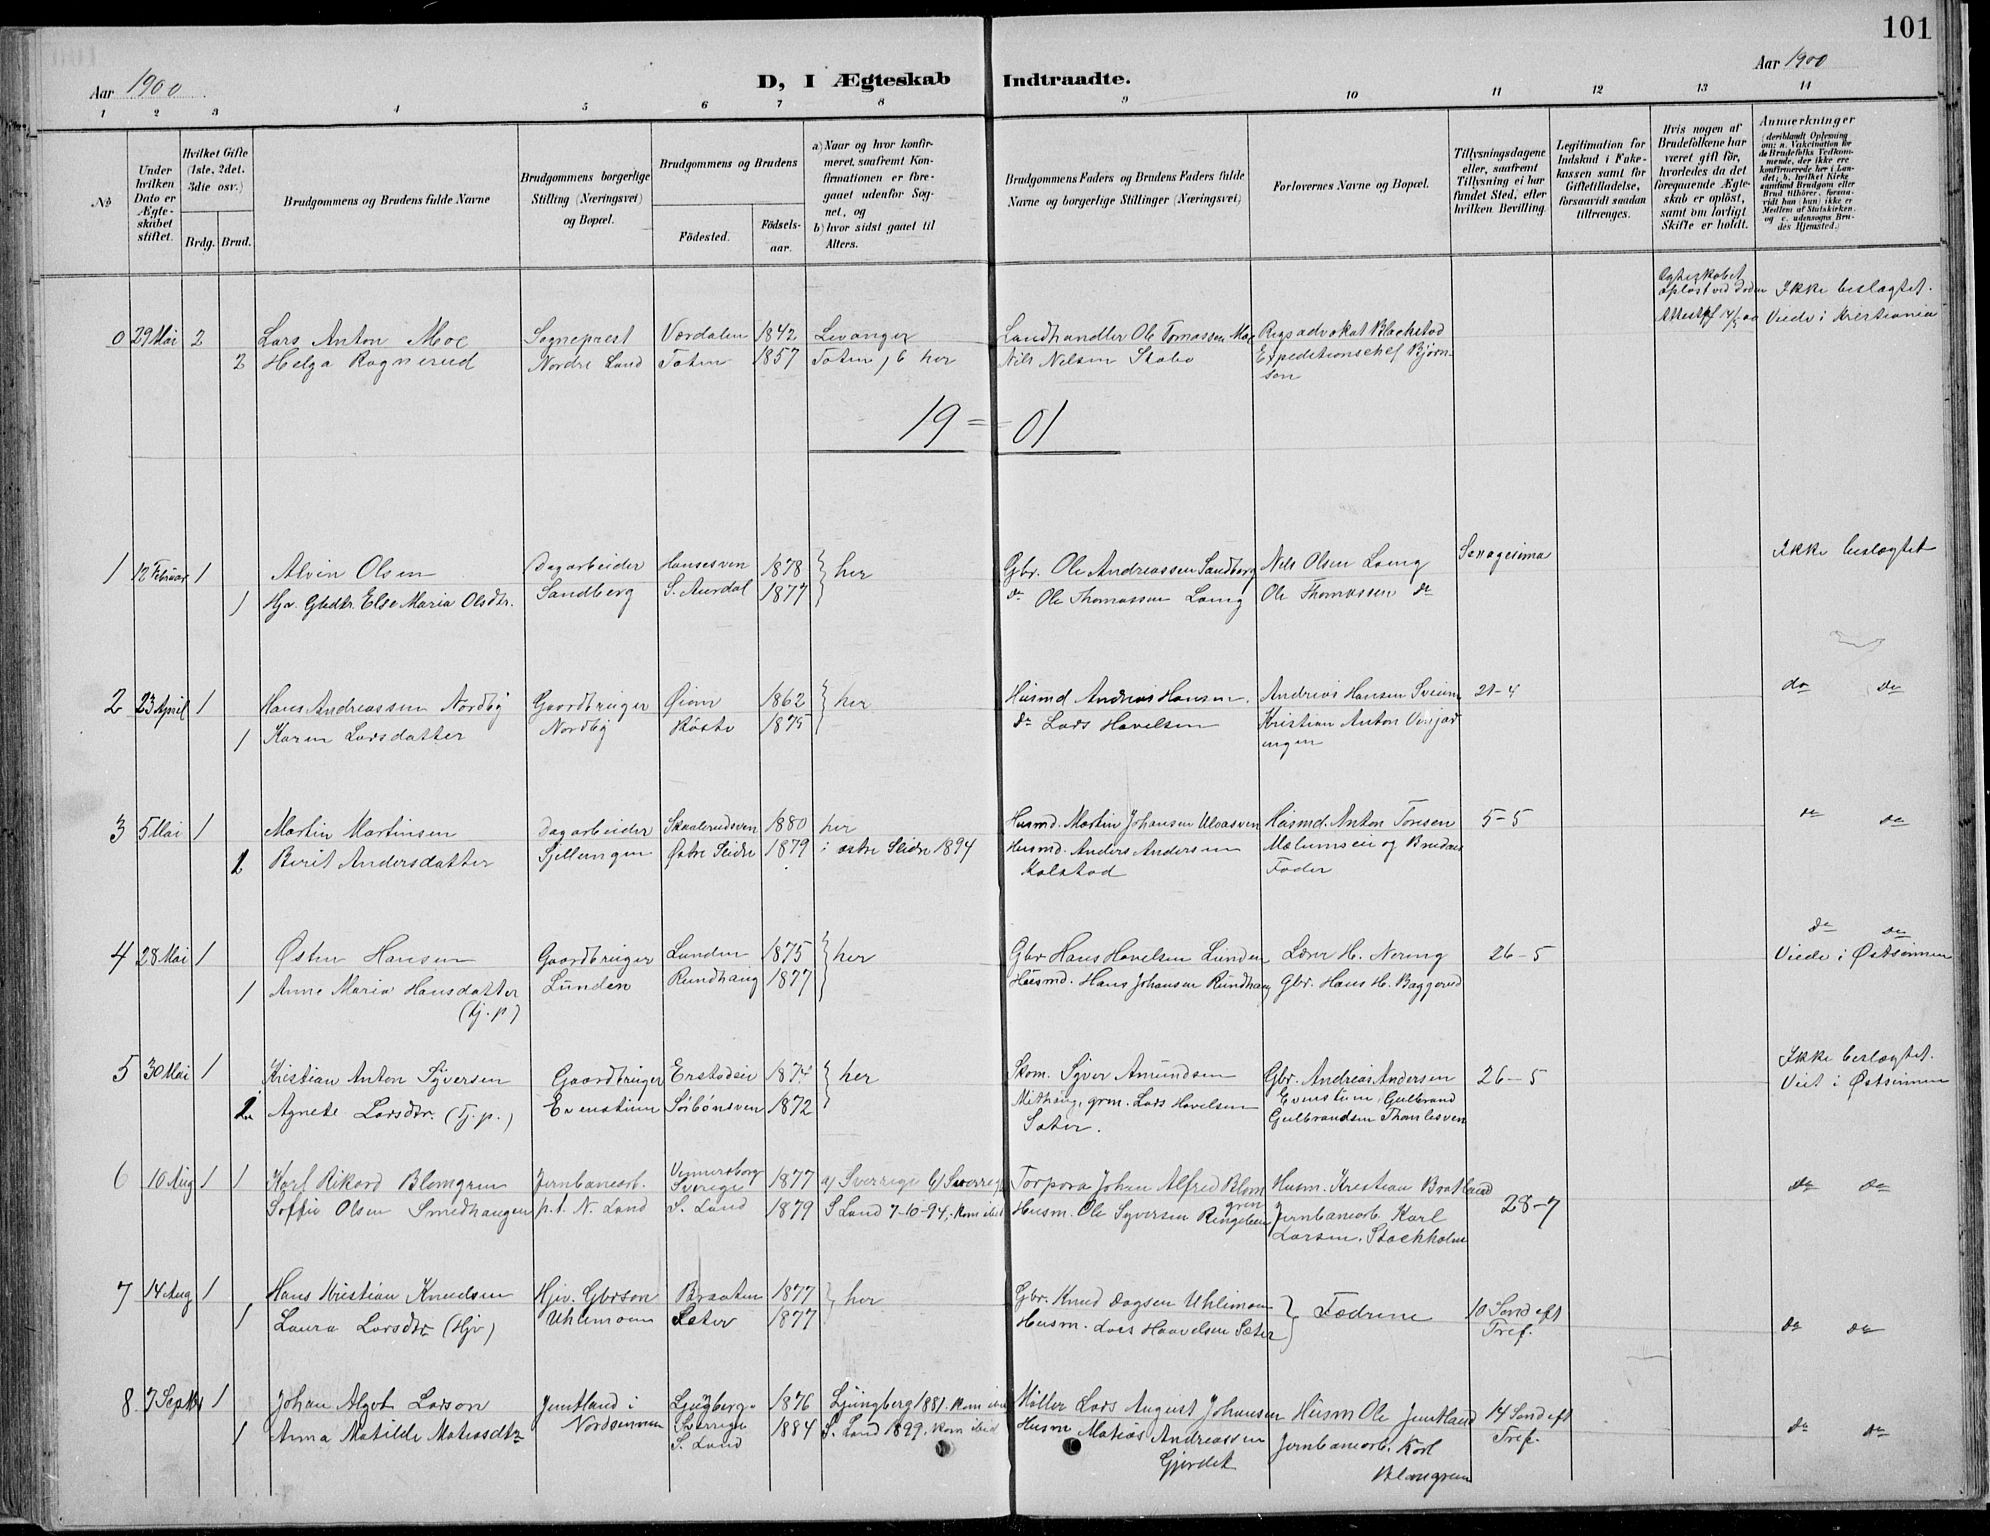 101
Aar 1900
D, I Ægteskab Indtraadte.
Aar 1900
1 2 3 4 5 6 7 8 9 10 11 12 13 14
No
Under hvilken Dato er Ægteskabet stiftet.
Hvilket Gifte (1ste, 2det, 3die osv.)
Brdg. Brud.
Brudgommens og Brudens fulde Navne
Brudgommens borgerlige Stilling (Næringsvei) og Bopæl.
Brudgommens og Brudens
Fødested. Fødselsaar.
a) Naar og hvor konfirmeret, saafremt Konfirmationen er foregaaet udenfor Sognet, og
b) hvor sidst gaaet til Alters.
Brudgommens Faders og Brudens Faders fulde Navne og borgerlige Stillinger (Næringsvei)
Forlovernes Navne og Bopæl.
Tillysningsdagene eller, saafremt Tillysning ei har fundet Sted, efter hvilken Bevilling.
Legitimation for Indskud i Enkekassen samt for Giftetilladelse, forsaavidt saadan tiltrænges.
Hvis nogen af Brudefolkene har været gift før, hvorledes da det foregaaende Ægteskab er opløst, samt om lovligt Skifte er holdt.
Anmerkninger
(deriblandt Oplysning om: a. Vakcination for de Brudefolks Vedkommende, der ikke ere konfirmerede her i Landet; b. hvilket Kirkesamfund Brudgom eller Brud tilhører, forsaavidt han (hun) ikke er Medlem af Statskirken, og c. udensogns Brudes Hjemsted.)
0 29 Mai 2 Lars Anton Moe Sogneprest Værdalen 1842 Levanger Landhandler Ole Tomassen Moe Regsadvokat Blackstad Ægteskabet opløst ved Døden Attest pf 14/5 00 Ikke beslægtet. Viede i Kristiania
2 Helga Rognerud Nordre Land Toten 1857 Toten, b her Nils Nilsen Skabo Expeditionschef Bjørnson
19 = 01
1 12 Februar 1 Alvin Olsen Dagarbeider 1878 } her Gbr. Ole Andreassen Sandberg Nils Olsen Loeng Sexagesima Ikke beslægtet
1 Hjv. Gbdtr. Else Maria Olsdtr. Sandberg S. Aurdal 1877 do Ole Thomassen Loeng Ole Thomassen do
2 23 April 1 Hans Andreassen Nordby Gaardbruger Øiom 1862 } her Husmd Andreas Hansen. Andreas Hansen 21-4 do do
1 Karen Larsdatter Nordby Røste 1875 do Lars Hovelsen Kristian Anton
3 5 Mai 1 Martin Martinsen Dagarbeider Skaalerudsven 1880 her Husmd. Martin Johansen Husmd. Anton Tonsen 5-5 do do
1 Berit Andersdatter Østre Slidre 1879 i østre Slidre 1894 Husmd. Anders Andersen Kolstad og Brudens Fader
4 28 Mai 1 Østen Hansen Gaardbruger Lunden 1875 } her Gbr Hans Hovelsen Lunden Lærer H. Nering 26-5 do do Viede i Østsinnen
1 Anne Maria Hansdatter (tj. p) Lunden Rundhaug 1877 Husmd. Hans Johansen Rundhaug Gbr. Hans H. Baggerud
5 30 Mai 1 Kristian Anton Syversen Gaardbruger 1874 } her Skom. Syver Amundsen Gbr. Andreas Andersen 26-5 Ikke beslægtet. Viet i Østsinnen
Agnete Larsdtr. (tj. p.) Evenstuen Sørbønsven 1872 Midhaug, grm. Lars Hovelsen Sæter. Evenstuen, Gulbrand Gulbrandsen Thomlesven
6 10 Aug 1 1 Karl Rikard Blomgren Jernbanearb. Vennersborg Sverige 1877 a) Sverrige b) Sverrige Torpora Johan Alfred Blomgren Husm. Kristian Bratland 28-7 do do
Soffie Olsen Smedhaugen p.t. N. Land S. Land 1879 S Land 7-10-94, kom ibid Husm. Ole Syversen Ringelien Jernbanearb. Karl Larsen, Stockholm
7 14 Aug 1 Hans Kristian Knudsen Hjv. Gbrsøn Braaten 1877 } her Gbr. Knud Dagsen Uhlimoen } Fædrene 10 Sond eft Tref. do do
1 Laura Larsdtr (Hjv) Uhlimoen Sæter 1877 Husm. Lars Haavelsen Sæter
8 7 Septbr 1 Johan Algot Larson Jemtland i Ljugberg Sverrige 1876 Ljungberg 1881. kom ibid Møller Lars August Johansen Husm Ole Jemtland 14 Sond eft Tref. do do
1 Anna Matilde Matiasdtr Nordsinnen S. Land 1884 S. Land 1899, kom ibid Husm Matias Andreassen Gjerdet Jernbanearb. Karl Blomgren